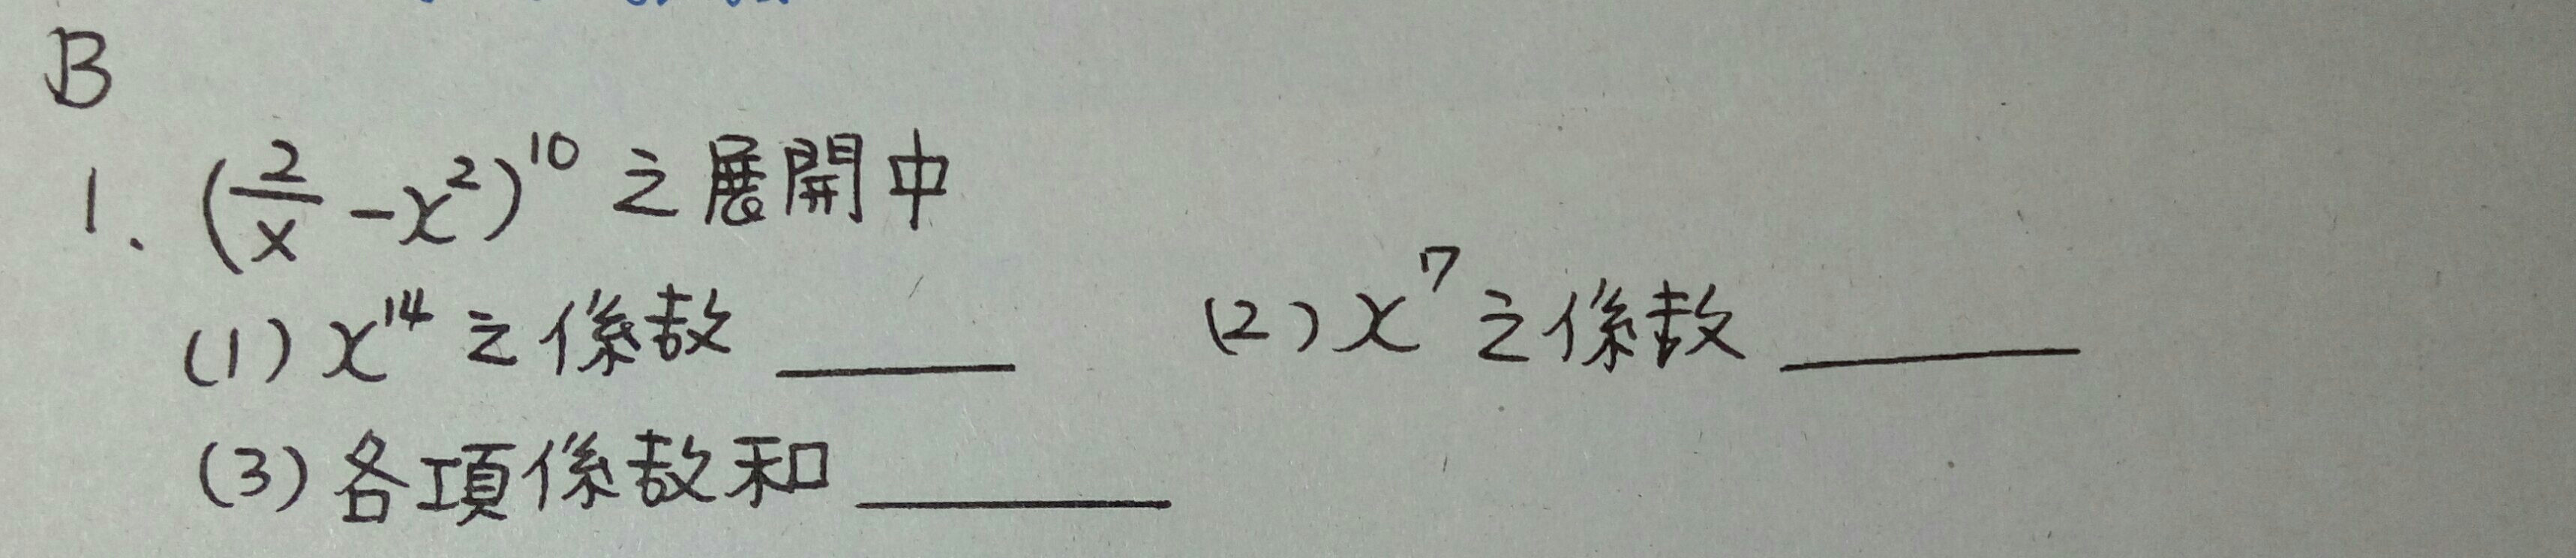 B
1. (2/x - x²)¹⁰ 之展開中
(1) x¹⁴ 之係数 ______ (2) x⁷ 之係数 ______
(3) 各項係数和 ______